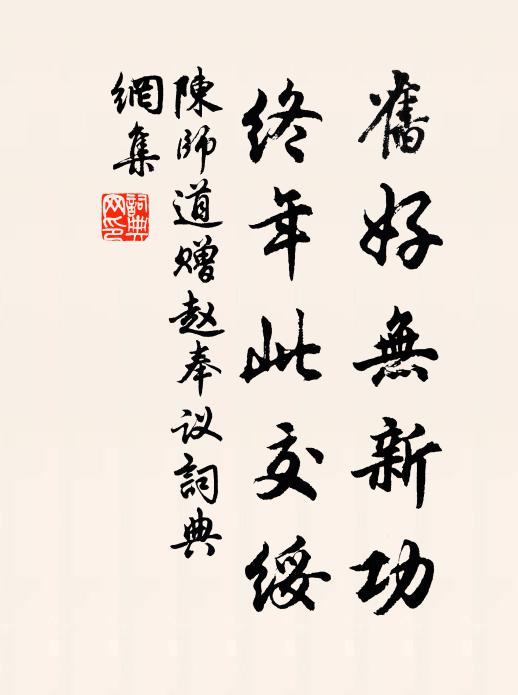 舊好無新功
終年此交綏
陳師道贈赵奉议詞典
網集
詞典
网印